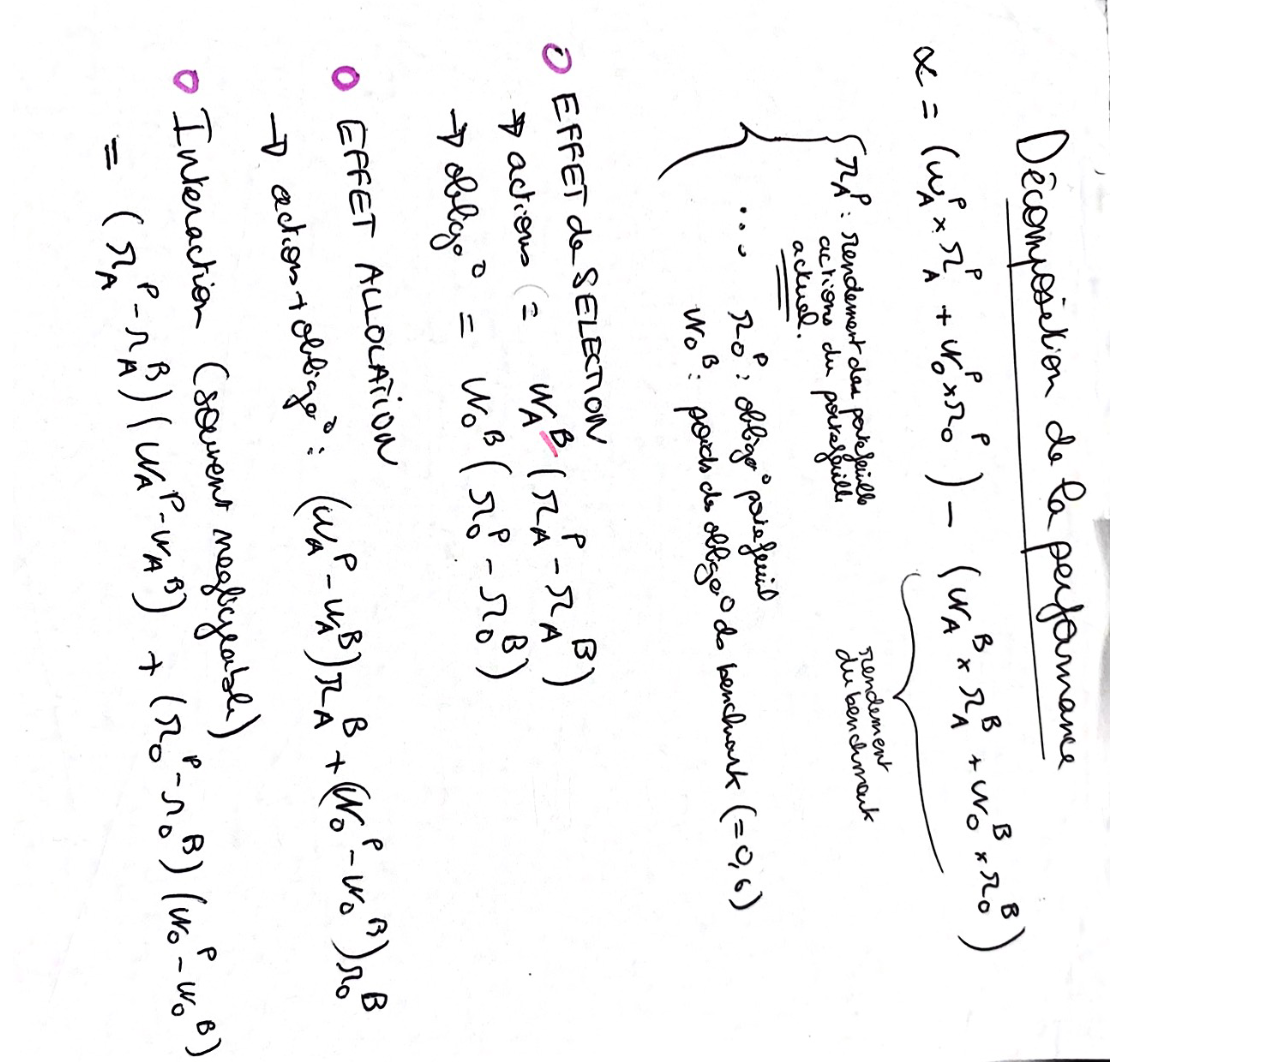 Décomposition de la performance
α = (w_A^P × r_A^P + w_o^P × r_o^P) − (w_A^B × r_A^B + w_o^B × r_o^B)
rendement
du benchmark
r_A^P : rendement du portefeuille
actions du portefeuille
actuel.
... r_o^P : obligᵒ portefeuil
w_o^B : poids des obligᵒ du benchmark (=0,6)
o EFFET de SELECTION
→ actions = w_A^B (r_A^P − r_A^B)
→ obligᵒ = w_o^B (r_o^P − r_o^B)
o EFFET ALLOCATION
→ action + obligᵒ : (w_A^P − w_A^B) r_A^B + (w_o^P − w_o^B) r_o^B
o Interaction (souvent negligeable)
= (r_A^P − r_A^B) (w_A^P − w_A^B) + (r_o^P − r_o^B) (w_o^P − w_o^B)